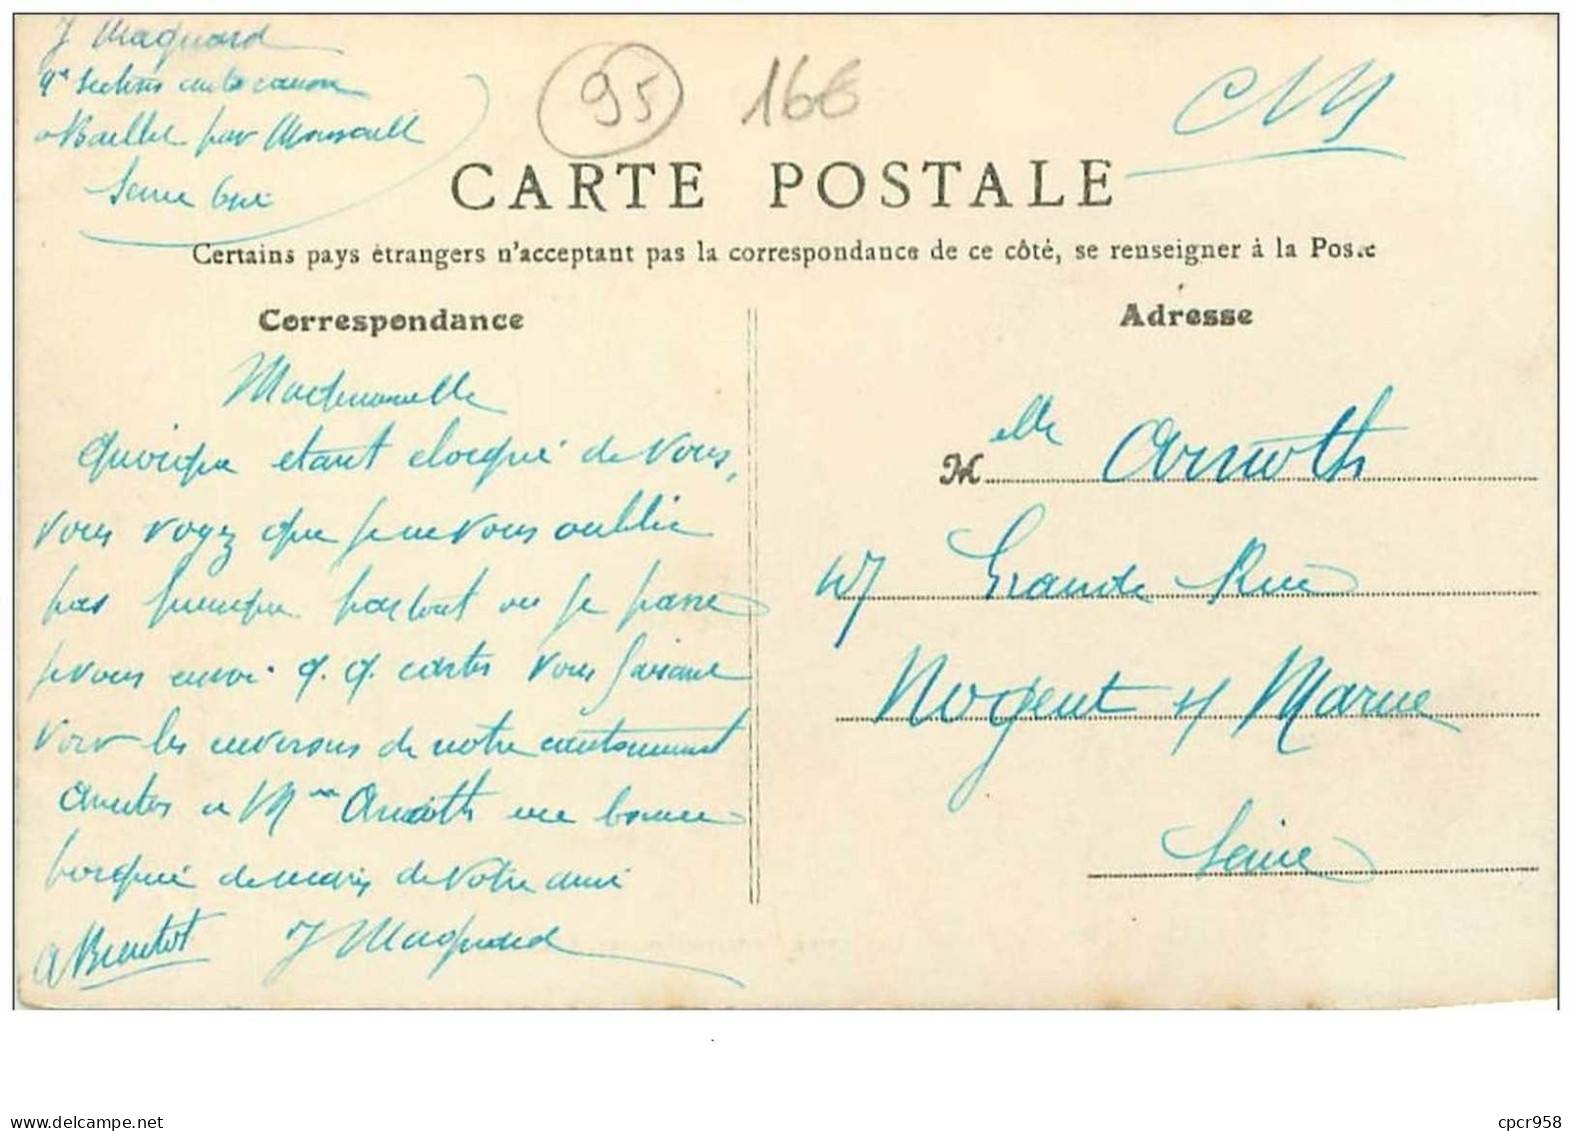 J Maquard
9e Section auto canon
a Baillet par Moussoult
Seine Oise
95 16€
CM
CARTE POSTALE
Certains pays étrangers n'acceptant pas la correspondance de ce côté, se renseigner à la Poste
Correspondance
Adresse
Mademoiselle
quoique etant eloequé de Vous,
vous voyez que je ne vous oublie
pas puisque partout ou je passe
je vous envoi q. q. cartes vous faisant
voir les environs de notre cantonnement
a Mme Arnoth une bonne
de mains de votre ami
a Bientot J Maquard
Melle Arnoth
47 Grande Rue
Nogent s/ Marne
Seine
www.delcampe.net
cpcr958